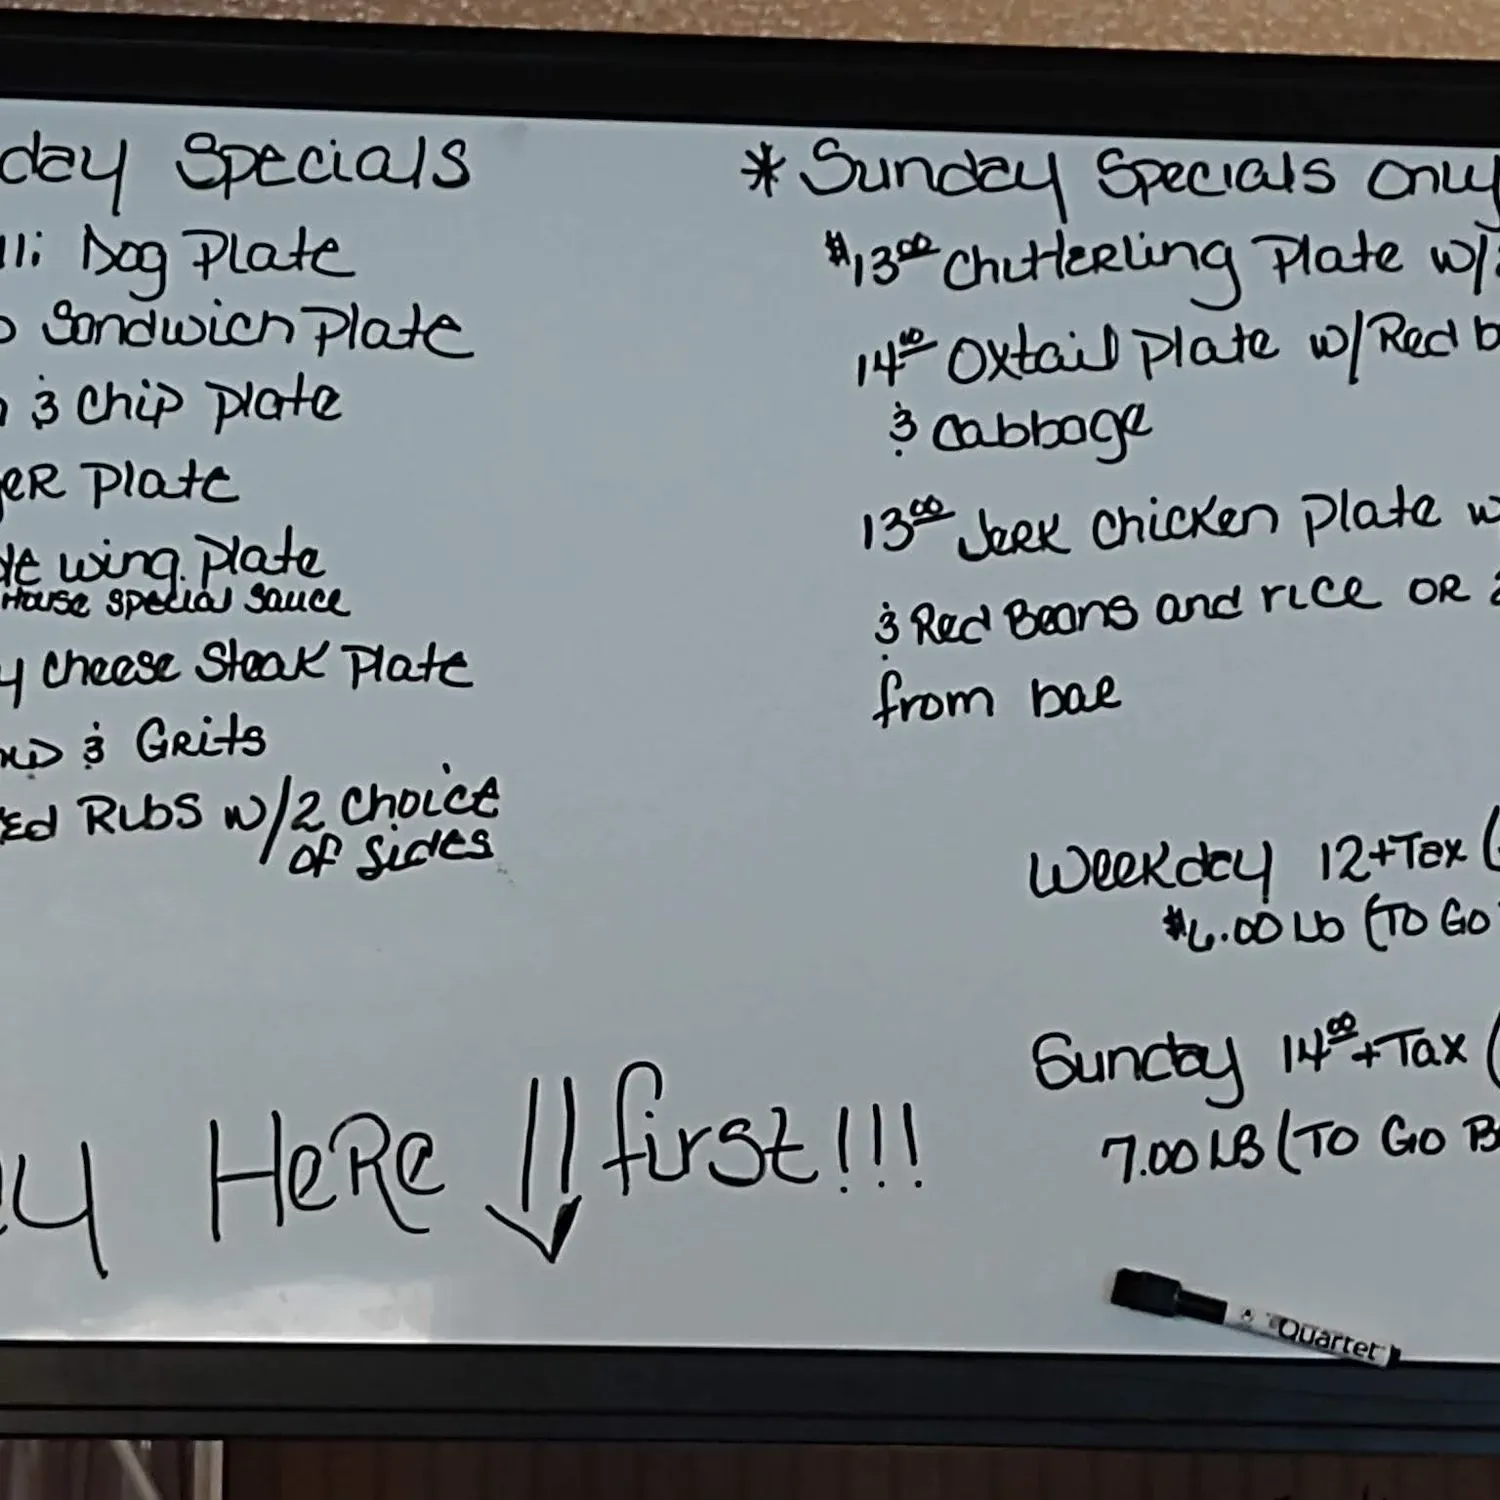 day Specials
lli Dog Plate
o Sandwich Plate
& Chip Plate
er Plate
le wing Plate
House Special Sauce
y Cheese Steak Plate
& Grits
ed Ribs w/2 choice
of sides
* Sunday Specials Only
$13.00 Chitterling Plate w/
14.00 Oxtail Plate w/Red b
& Cabbage
13.00 Jerk Chicken Plate w
& Red Beans and rice or 2
from bar
Weekday 12+Tax (
$6.00 Lb (To Go
Sunday 14.00+Tax (
7.00 LB (To Go B
y Here first!!!
Quartet